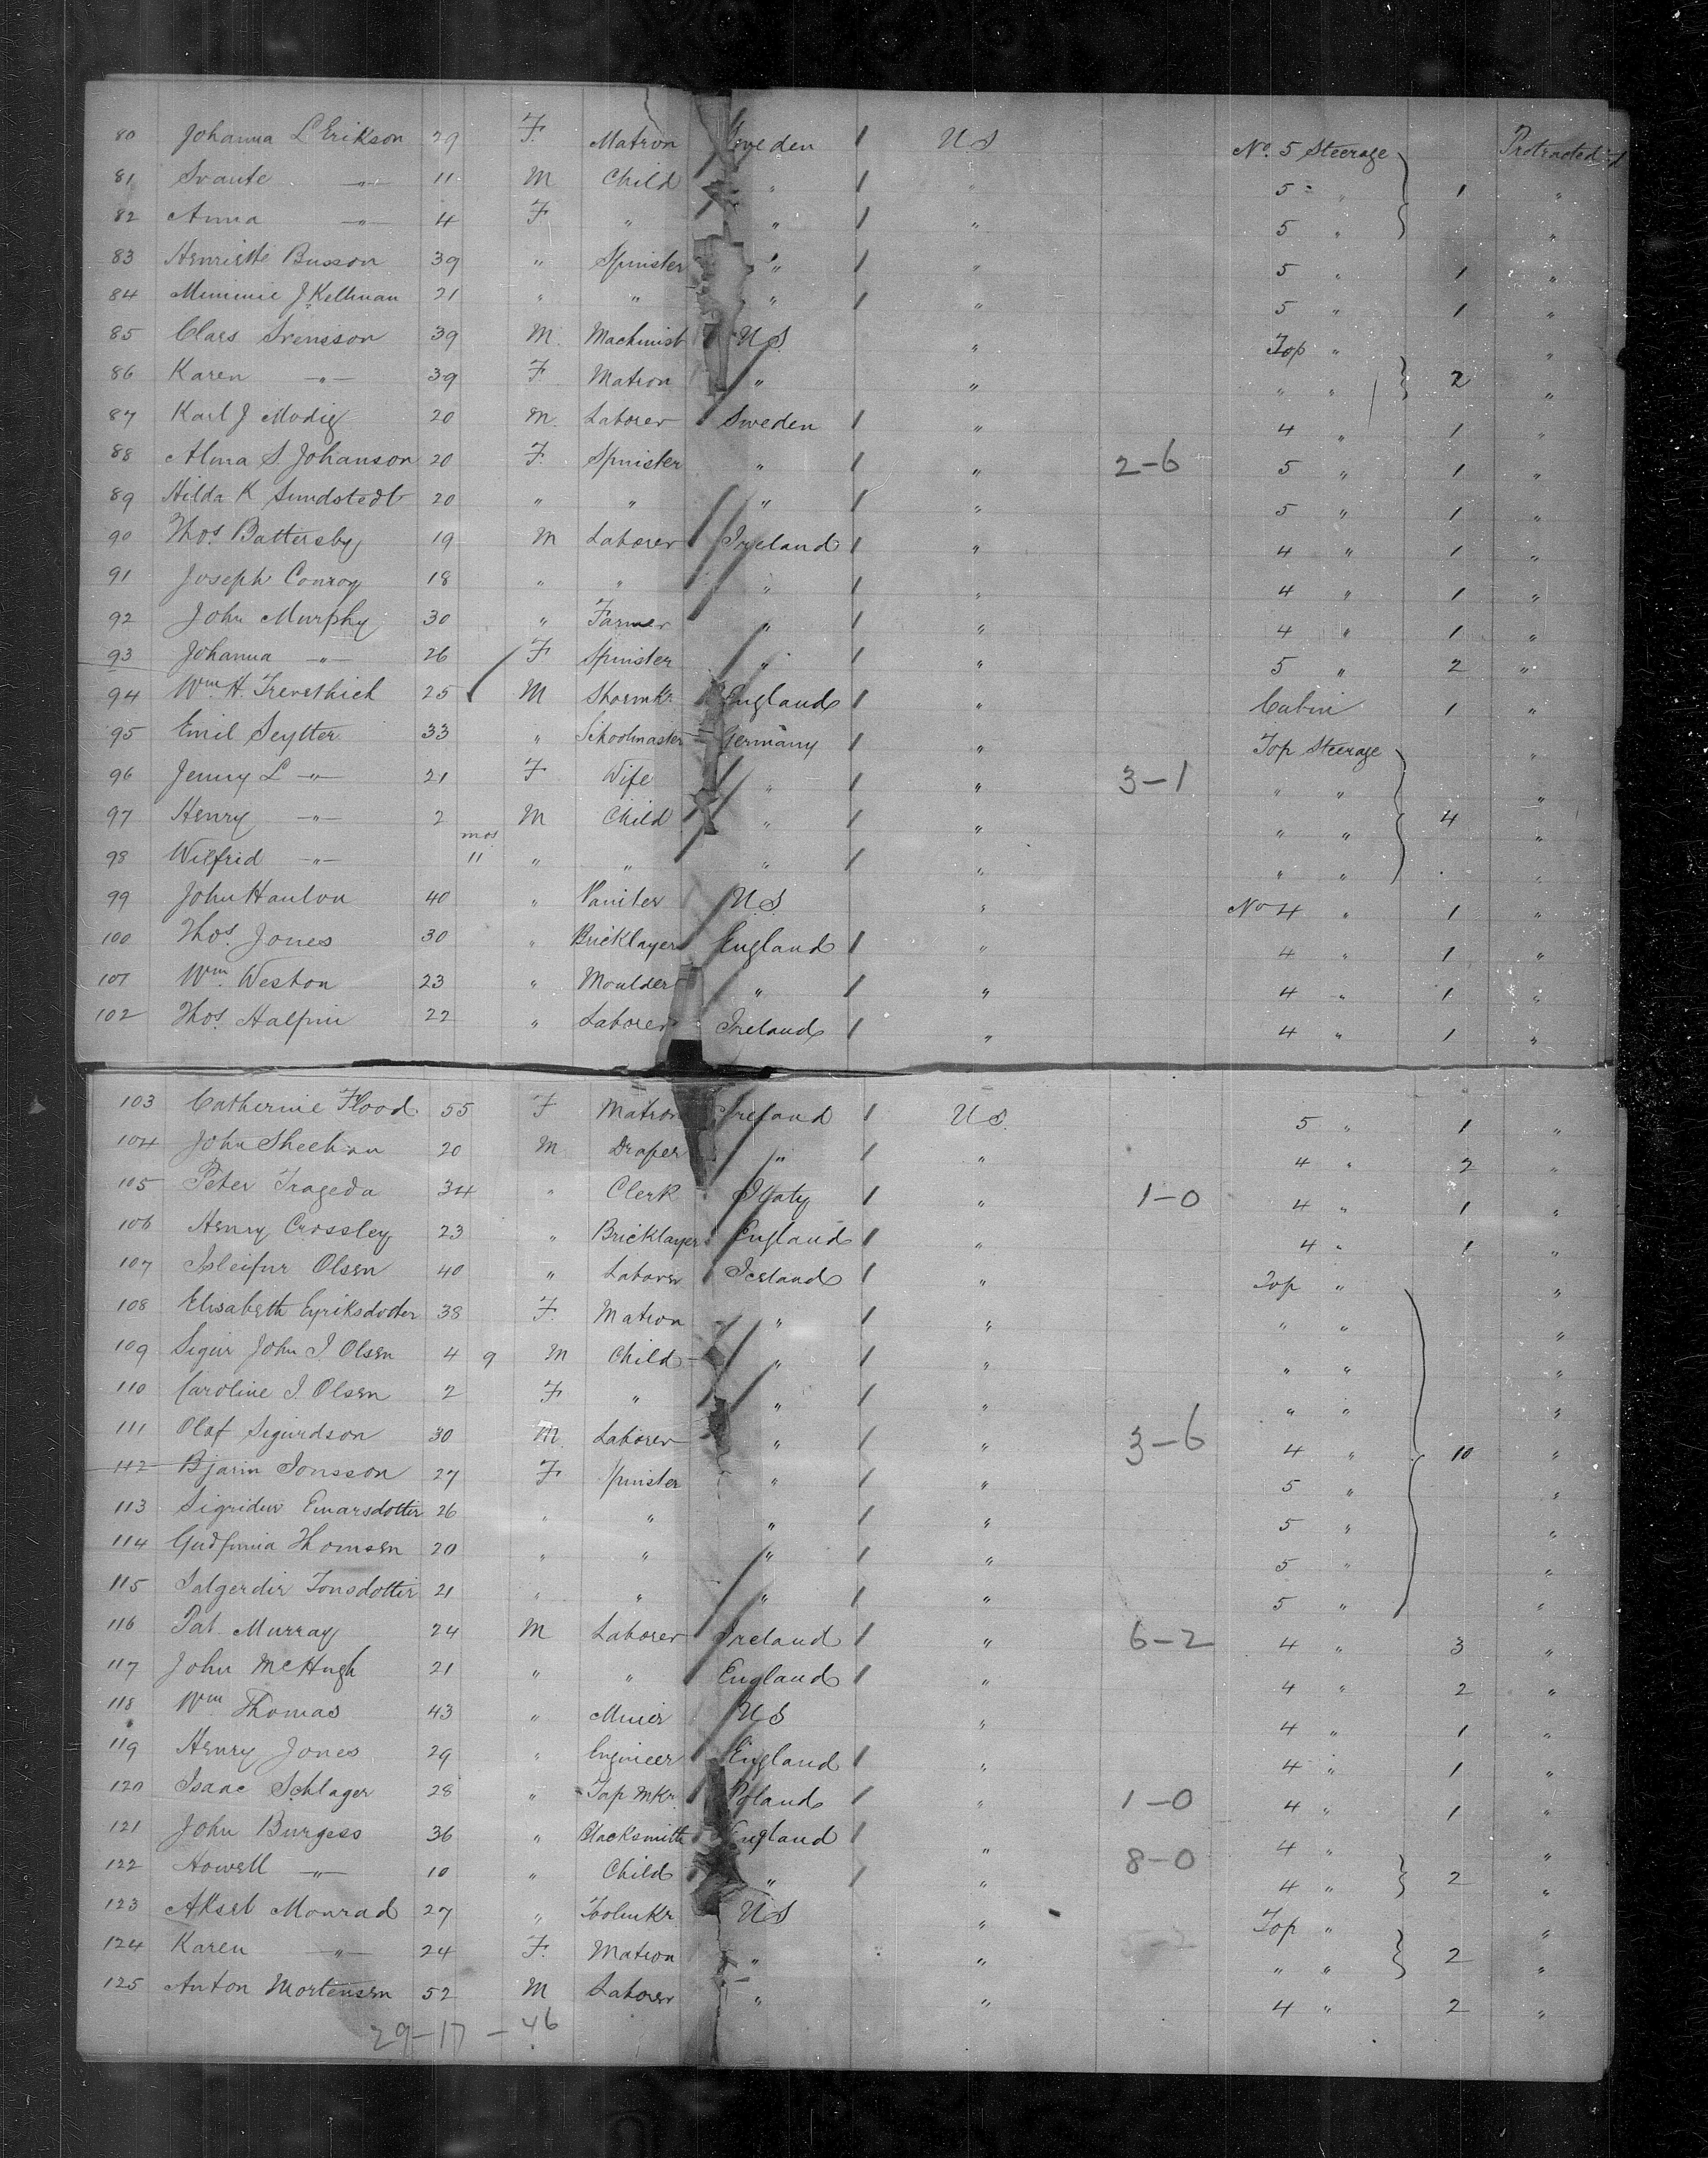 80 Johanna L Erikson 29 F. Matron Sweden U S No. 5 Steerage Protracted
81 Svante —"— 11 M Child " " 5 " 1 "
82 Anna —"— 4 F " " " 5 " "
83 Henriette Busson 39 " Spinster " " 5 " 1 "
84 Minnie J. Kellman 21 " " " " 5 " 1 "
85 Clars Svensson 39 M. Machinist U S. " Top " "
86 Karen —"— 39 F. Matron " " " " 2 "
87 Karl J Modig 20 M. Laborer Sweden " 4 " 1 "
88 Alma S. Johanson 20 F. Spinster " " 2-6 5 " 1 "
89 Hilda K Sundstedt 20 " " " " 5 " 1 "
90 Thos. Battersby 19 M Laborer Ireland " 4 " 1 "
91 Joseph Conroy 18 " " " " 4 " 1 "
92 John Murphy 30 " Farmer " " 4 " 1 "
93 Johanna —"— 26 F Spinster " " 5 " 2 "
94 Wm. H. Trevethick 25 M Shoemkr England " Cabin 1 "
95 Emil Seytter 33 " Schoolmaster Germany " Top Steerage "
96 Jenny L —"— 21 F Wife " " 3-1 " " "
97 Henry —"— 2 M Child " " " " 4 "
98 Wilfrid —"— mos 11 " " " " " " "
99 John Hanlon 40 " Painter U.S. " No 4 " 1 "
100 Thos. Jones 30 " Bricklayer England " 4 " 1 "
101 Wm. Weston 23 " Moulder " " 4 " 1 "
102 Thos. Halpin 22 " Laborer Ireland " 4 " 1 "
103 Catherine Flood 55 F Matron Ireland U S. 5 " 1 "
104 John Sheehan 20 M Draper " " 4 " 2 "
105 Peter Trageda 34 " Clerk Italy " 1-0 4 " 1 "
106 Henry Crossley 23 " Bricklayer England " 4 " 1 "
107 Isleifur Olsen 40 " Laborer Iceland " Top " "
108 Elisabeth Eyriksdotter 38 F. Matron " " " " "
109 Sigur John I. Olsen 4 9 M Child " " " " "
110 Caroline I. Olsen 2 F " " " " " "
111 Olaf Sigurdson 30 M. Laborer " " 3-6 4 " 10 "
112 Bjarin Jonsson 27 F Spinster " " 5 " "
113 Sigridur Einarsdotter 26 " " " " 5 " "
114 Gudfinnia Thomsen 20 " " " " 5 " "
115 Salgerdir Jonsdottir 21 " " " " 5 " "
116 Pat. Murray 24 M Laborer Ireland " 6-2 4 " 3 "
117 John McHugh 21 " " England " 4 " 2 "
118 Wm Thomas 43 " Miner U S " 4 " 1 "
119 Henry Jones 29 " Engineer England " 4 " 1 "
120 Isaac Schlager 28 " Cap Mkr. Poland " 1-0 4 " 1 "
121 John Burgess 36 " Blacksmith England " 4 " "
122 Howell —"— 10 " Child " " 8-0 4 " 2 "
123 Aksel Monrad 27 " Toolmkr U S " Top " "
124 Karen —"— 24 F. Matron " " " " 2 "
125 Anton Mortensen 52 M Laborer " " 4 " 2 "
29-17-46